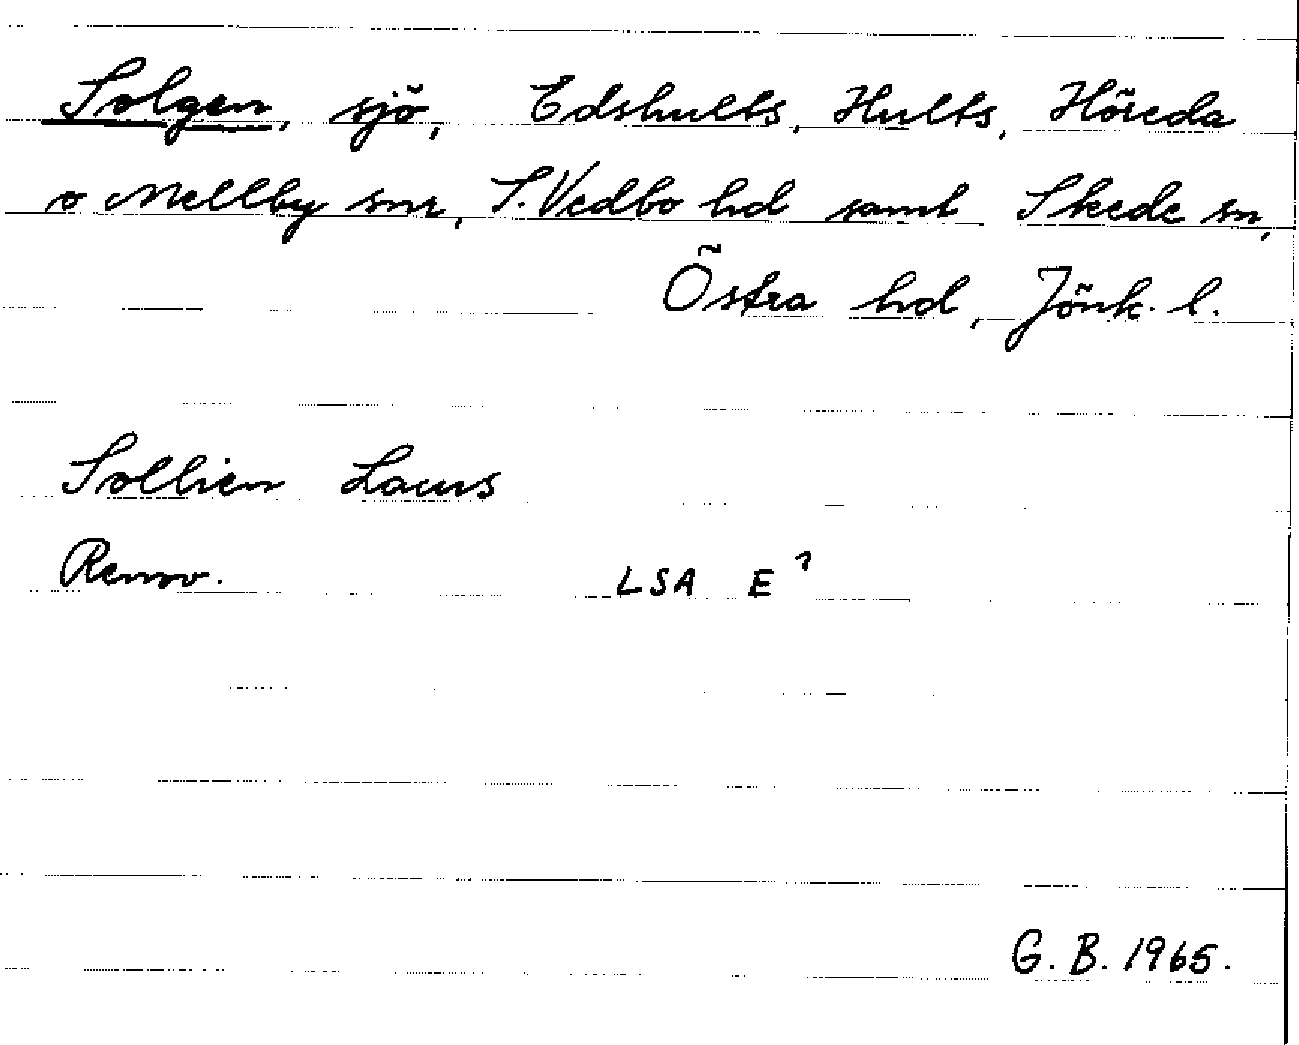 Solgen, sjö, Edshults, Hults, Höreda
o Mellby snr, S. Vedbo hd samt Skede sn,
Östra hd, Jönk. l.
Sollien Lacus
Renov. LSA E⁷
G. B. 1965.